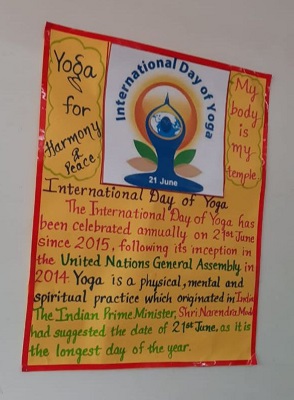 Yoga
for
Harmony
&
Peace
International Day of Yoga
21 June
My
body
is
my
temple
International Day of Yoga
The International Day of Yoga has
been celebrated annually on 21st June
since 2015, following its inception in
the United Nations General Assembly in
2014 Yoga is a physical, mental and
spiritual practice which originated in India
The Indian Prime Minister, Shri Narendra Modi
had suggested the date of 21st June. as it is
the longest day of the year.